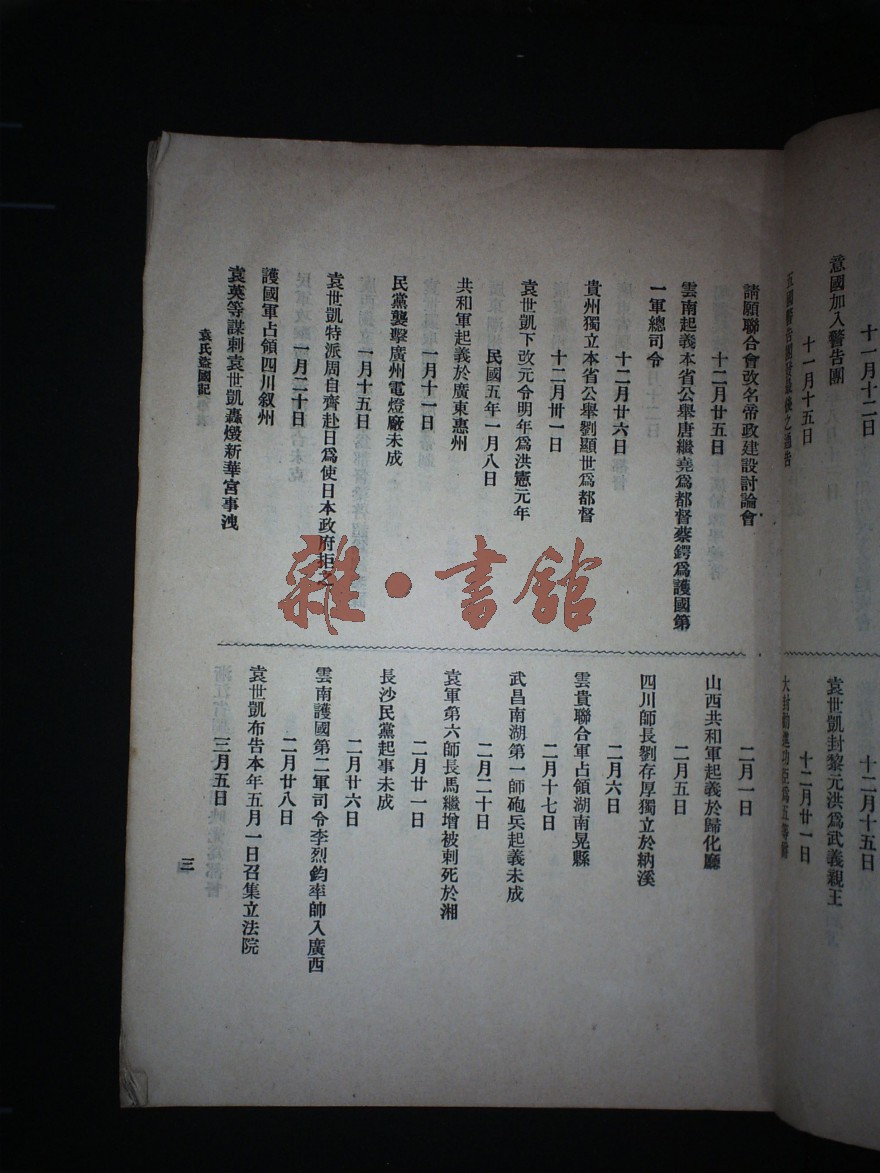 十一月十二日
意國加入警告團
十一月十五日
五國警告團發最後之通告
請願聯合會改名帝政建設討論會
十二月廿五日
雲南起義本省公舉唐繼堯爲都督蔡鍔爲護國第
一軍總司令
十二月廿六日
貴州獨立本省公舉劉顯世爲都督
十二月卅一日
袁世凱下改元令明年爲洪憲元年
民國五年一月八日
共和軍起義於廣東惠州
一月十一日
民黨襲擊廣州電燈廠未成
一月十五日
袁世凱特派周自齊赴日爲使日本政府拒之
一月二十日
護國軍占領四川叙州
袁英等謀刺袁世凱轟燬新華宮事洩
袁氏盜國記
十二月十五日
袁世凱封黎元洪爲武義親王
十二月廿一日
大封勳進功臣爲五等爵
二月一日
山西共和軍起義於歸化廳
二月五日
四川師長劉存厚獨立於納溪
二月六日
雲貴聯合軍占領湖南晃縣
二月十七日
武昌南湖第一師砲兵起義未成
二月二十日
袁軍第六師長馬繼增被刺死於湘
二月廿一日
長沙民黨起事未成
二月廿六日
雲南護國第二軍司令李烈鈞率師入廣西
二月廿八日
袁世凱布告本年五月一日召集立法院
三月五日
三
雜·書館